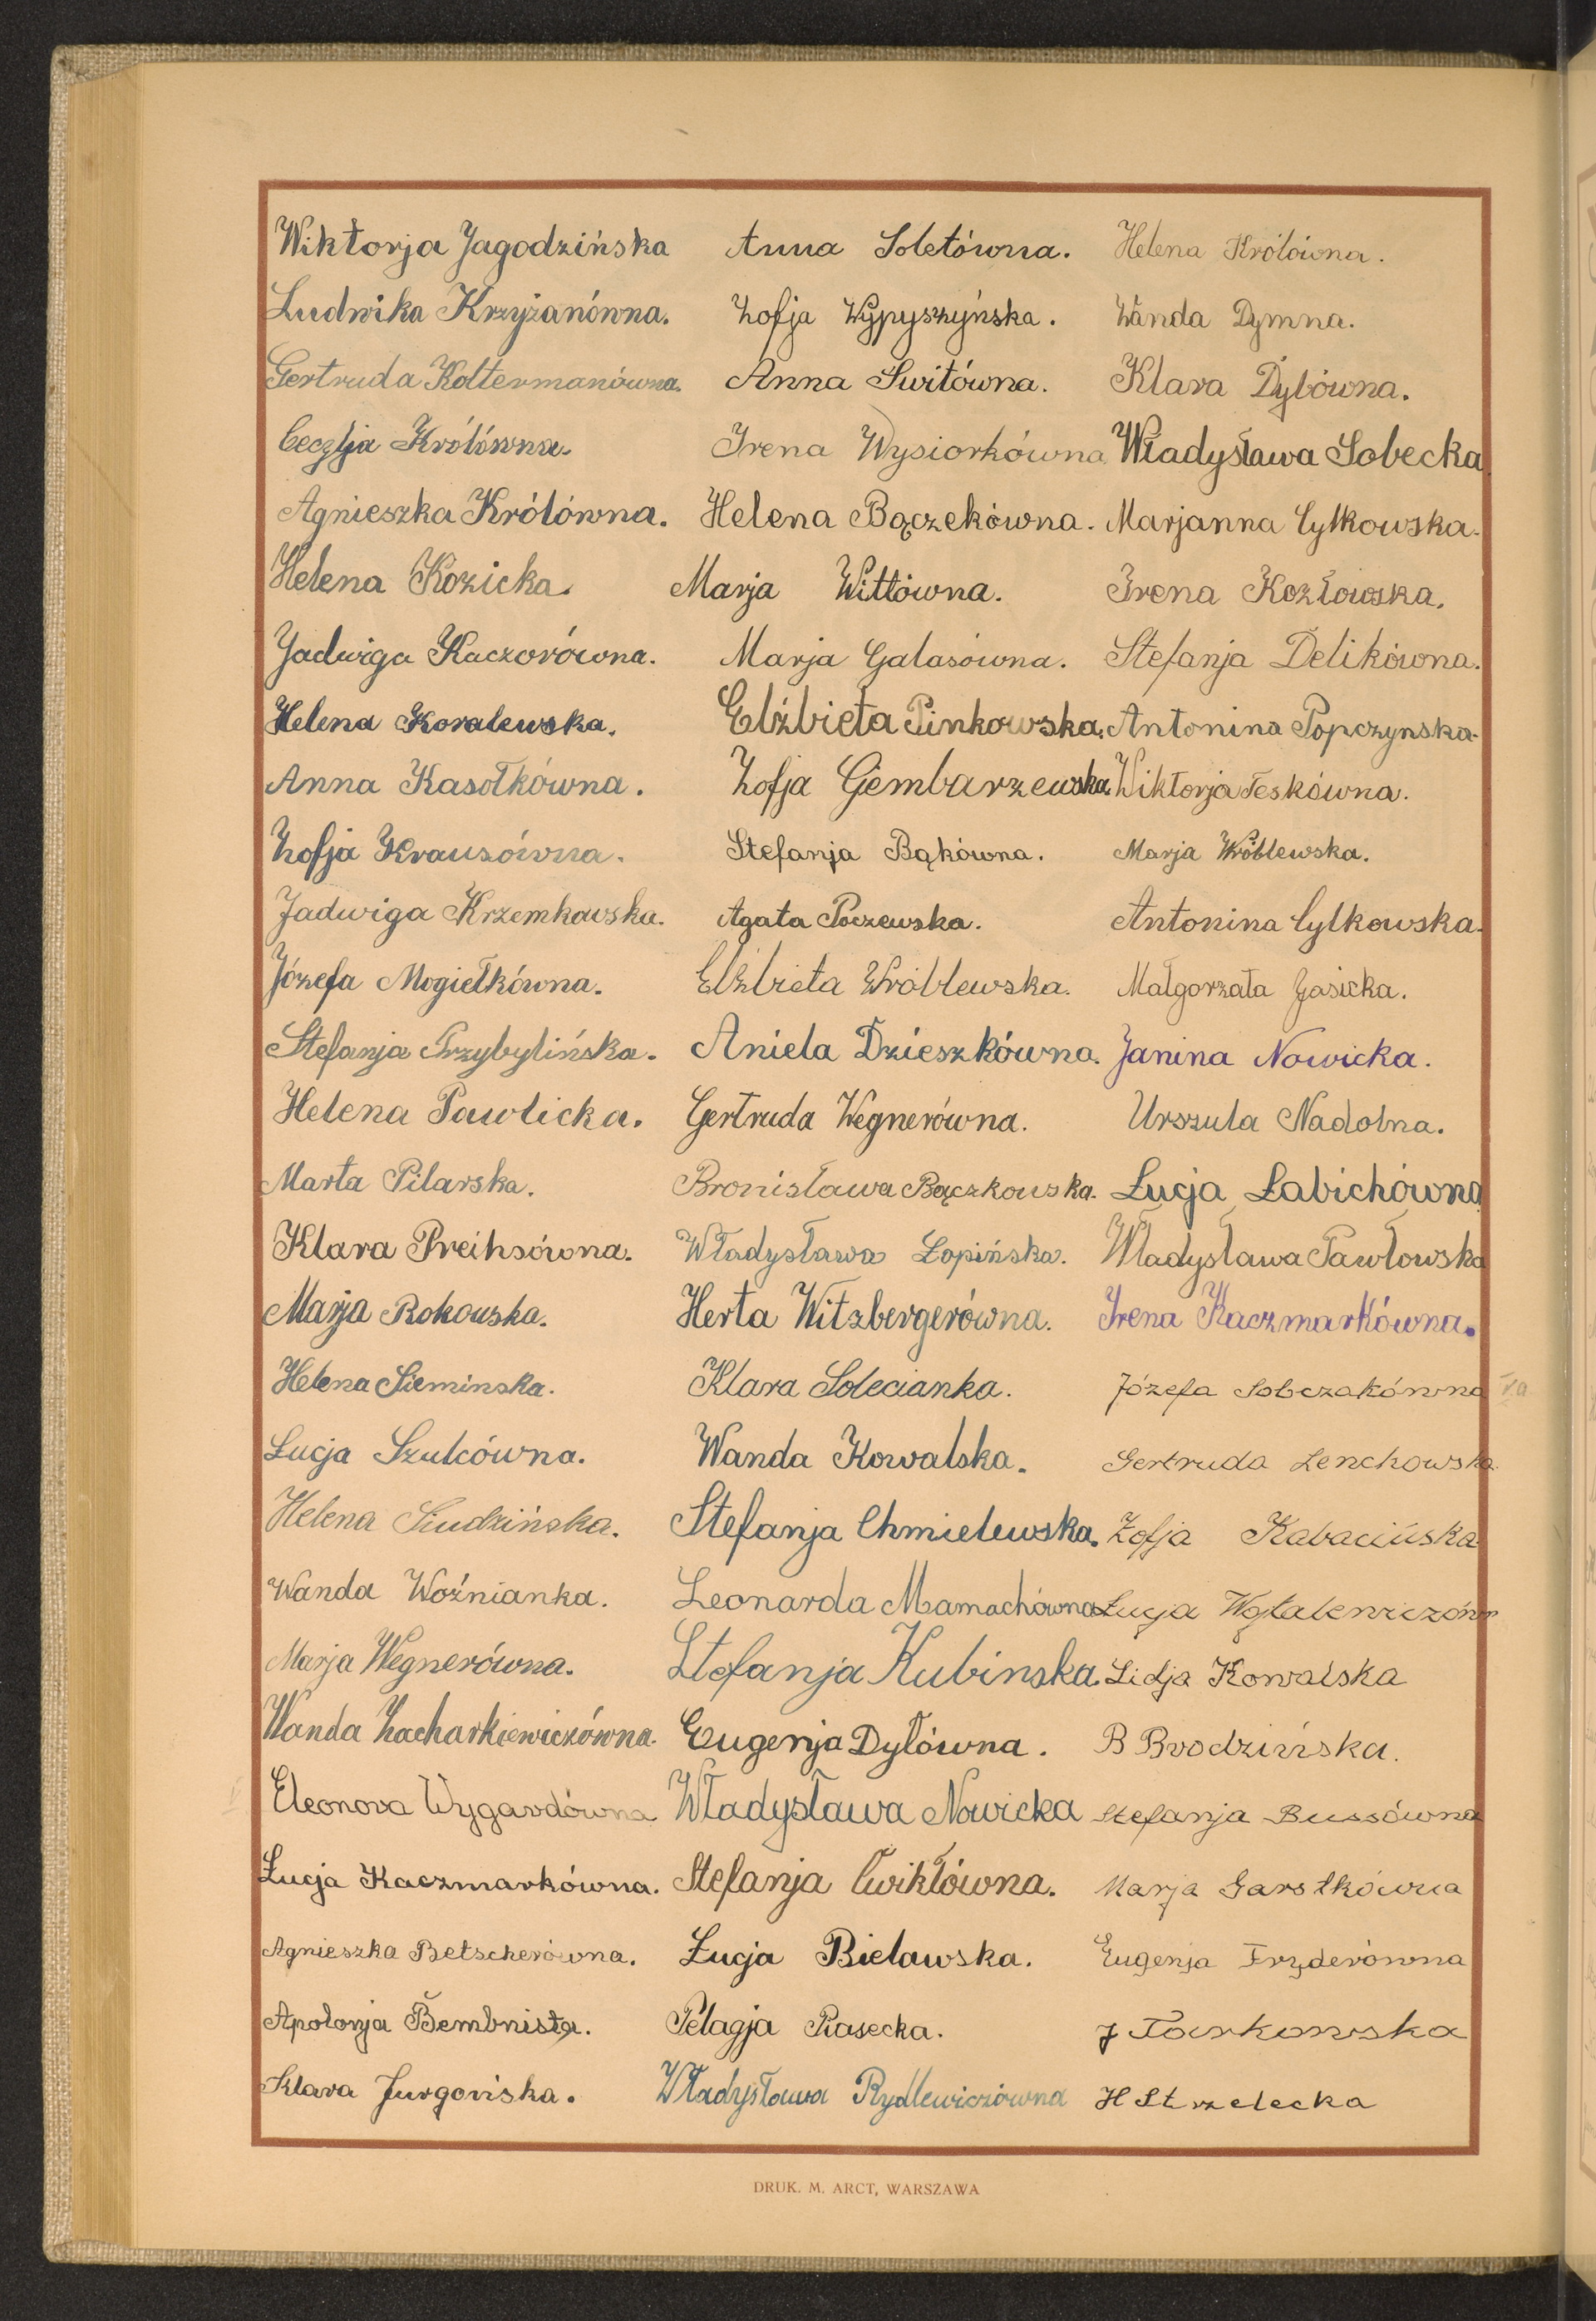 Wiktorja Jagodzińska
Ludwika Krzyżanówna.
Gertruda Koltermanówna.
Cecylja Królówna.
Agnieszka Królówna.
Helena Kozicka.
Jadwiga Kaczorówna.
Helena Kovalewska.
Anna Kasołkówna.
Zofja Krausówna.
Jadwiga Krzemkowska.
Józefa Mogiełkówna.
Stefanja Przybylińska.
Helena Pawlicka.
Marta Pilarska.
Klara Preihsówna.
Marja Rokowska.
Helena Sieminska.
Łucja Szulcówna.
Helena Siudzińska.
Wanda Woźnianka.
Marja Wegnerówna.
Wanda Zacharkiewiczówna.
Eleonora Wygardówna
Łucja Kaczmarkówna.
Agnieszka Betscherówna.
Apolonja Bembnista.
Klara Jurgońska.
Anna Soletówna.
Zofja Wypyszyńska.
Anna Switówna.
Irena Wysiorkówna
Helena Bączekówna.
Marja Wittówna.
Marja Galasówna.
Elżbieta Pinkowska.
Zofja Gembarzewska.
Stefanja Bąkówna.
Agata Poczewska.
Elżbieta Wróblewska.
Aniela Dzieszkówna.
Gertruda Wegnerówna.
Bronisława Bączkowska.
Władysława Łopińska.
Herta Witzbergerówna.
Klara Solecianka.
Wanda Kowalska.
Stefanja Chmielewska.
Leonarda Mamachówna
Stefanja Kubinska.
Eugenja Dyłówna.
Władysława Nowicka
Stefanja Ćwiktówna.
Łucja Bielawska.
Pelagja Piasecka.
Władysława Rydlewiczówna
Helena Królówna.
Wanda Dymna.
Klara Dybówna.
Władysława Sobecka
Marjanna Cylkowska.
Irena Kozłowska.
Stefanja Delikówna.
Antonina Popczynska.
Wiktorja Teskówna.
Marja Wróblewska.
Antonina Cylkowska.
Małgorzata Gąsicka.
Janina Nowicka.
Urszula Nadolna.
Łucja Łabichówna
Władysława Pawłowska
Irena Kaczmarkówna.
Józefa Sobczakówna
Gertruda Lenchowska
Zofja Kabacińska
Łucja
Lidja Kowalska
B Brodzińska.
Stefanja Bussówna
Marja Garstkówna
Eugenja Fryderówna
J Tarkowska
H Strzelecka
DRUK. M. ARCT, WARSZAWA